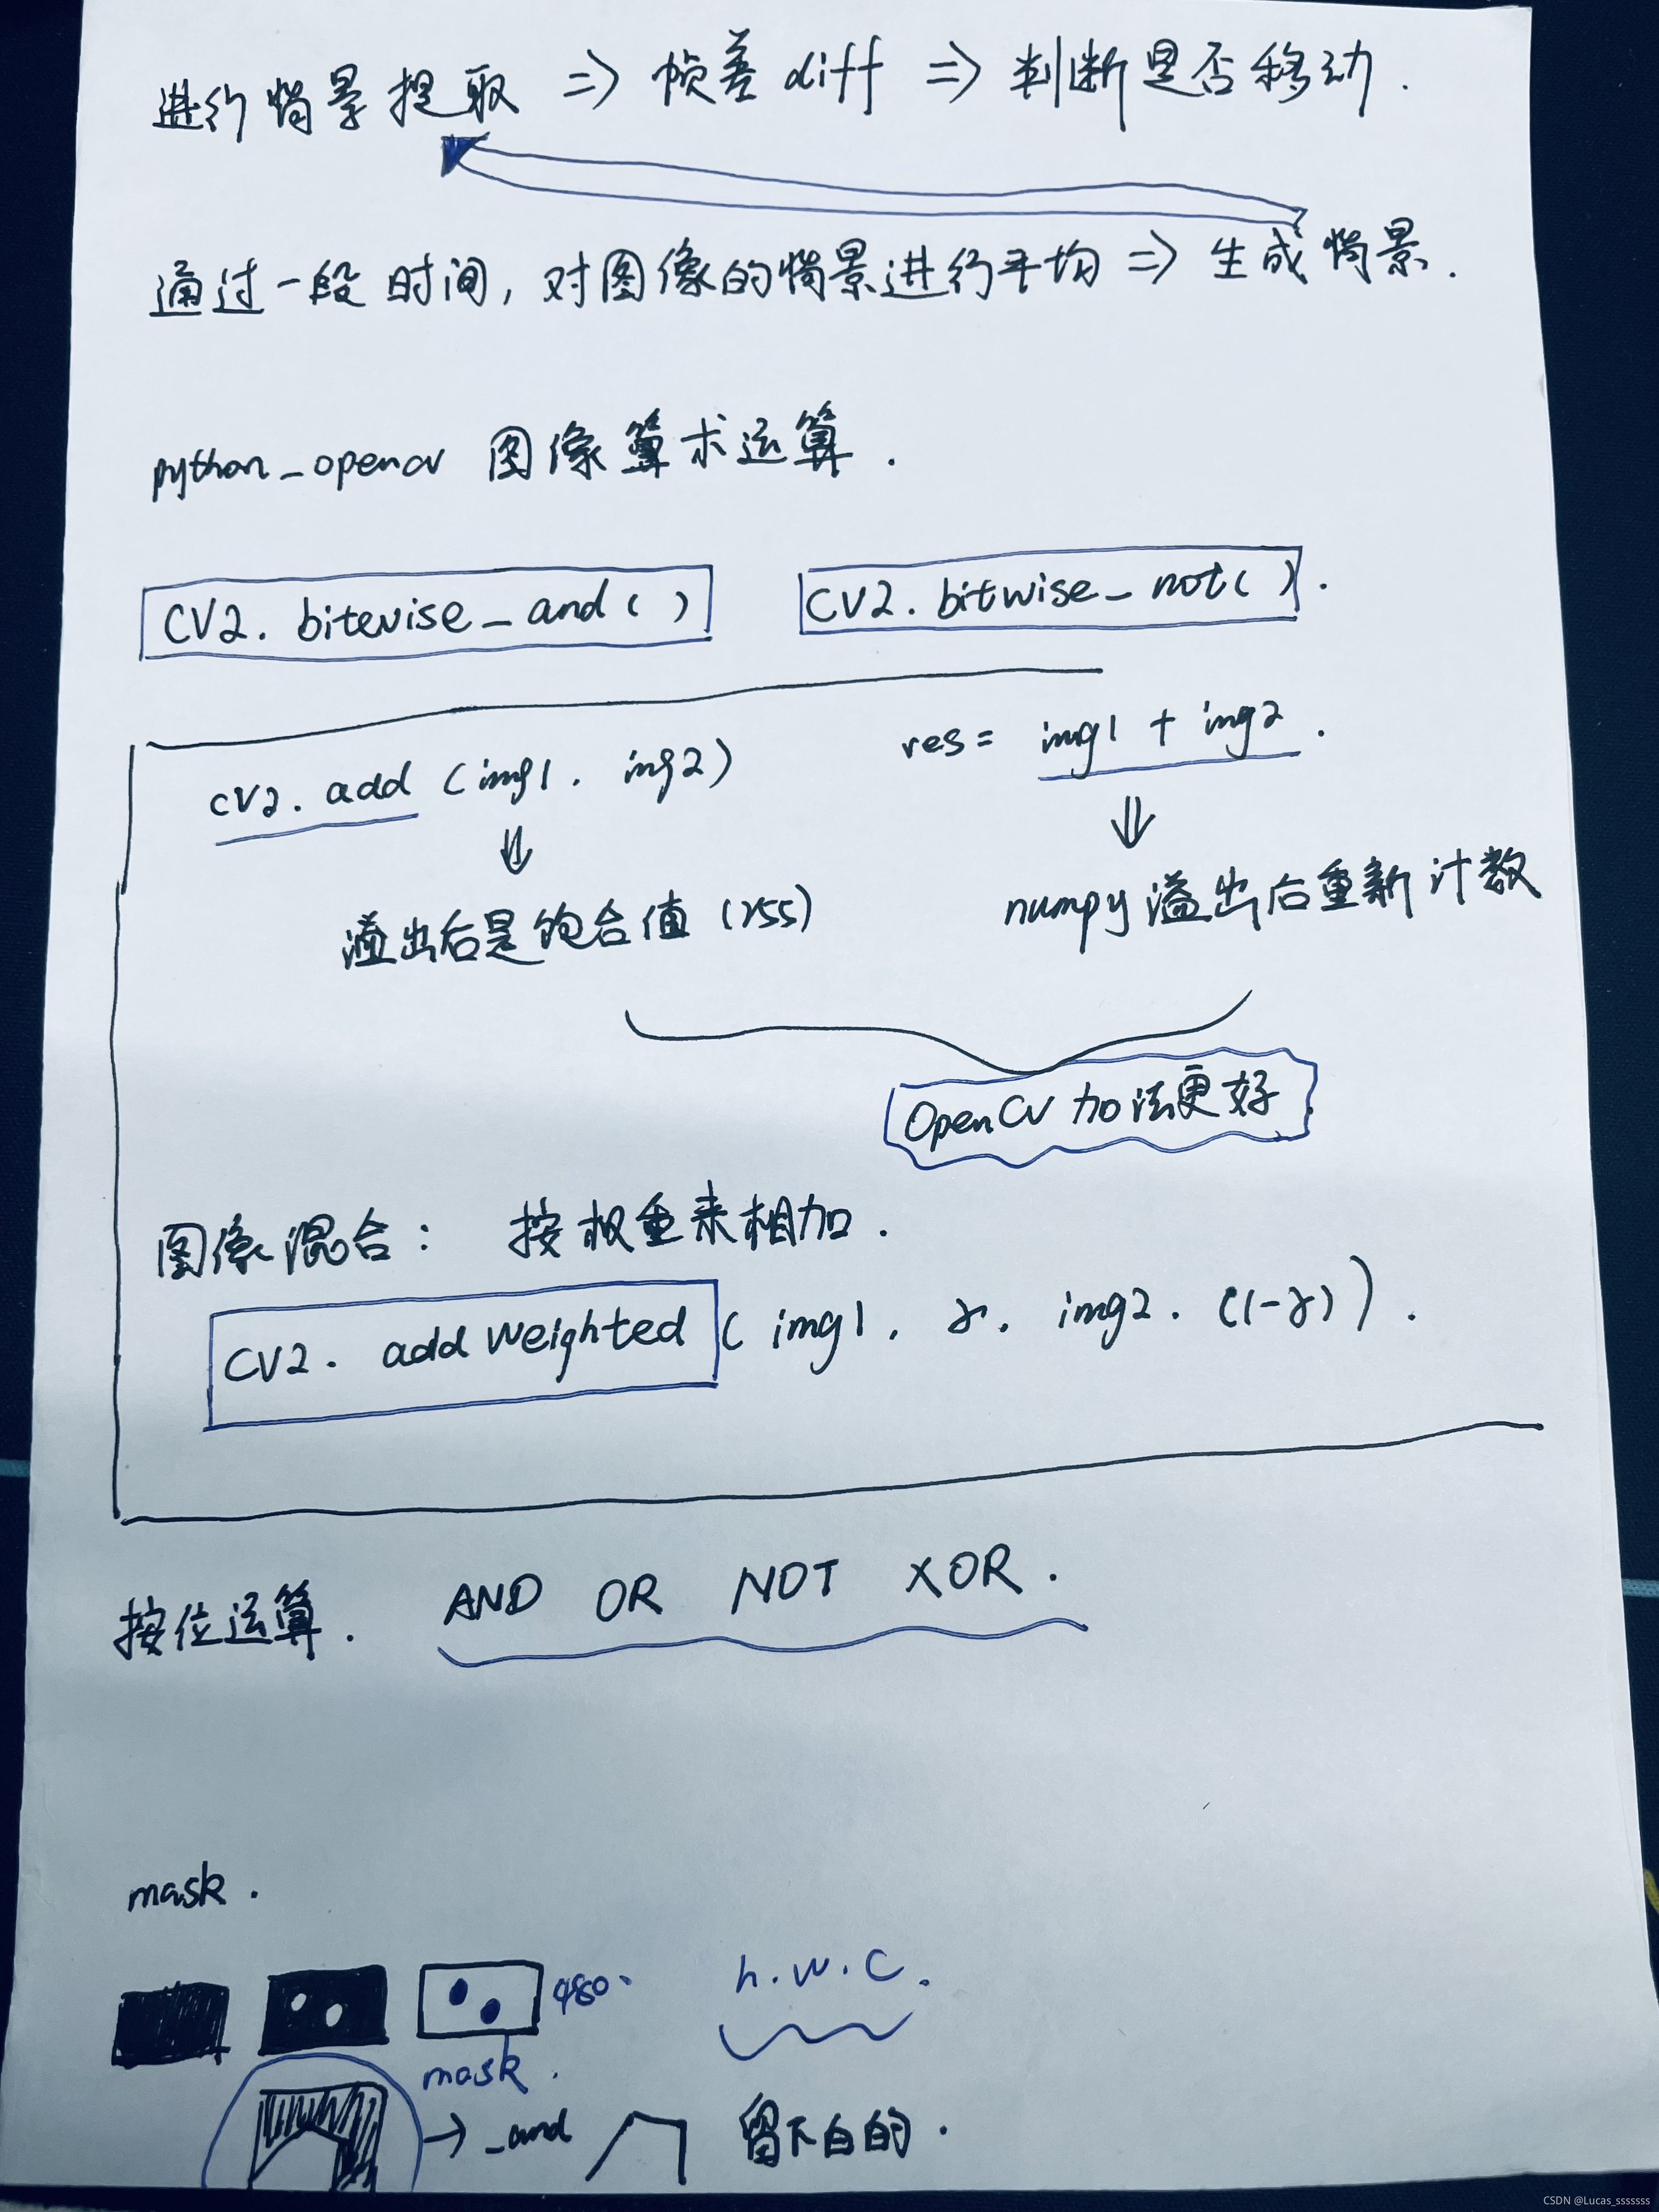 进行背景提取 => 帧差 diff => 判断是否移动.
通过一段时间, 对图像的背景进行平均 => 生成背景.
python_opencv 图像算术运算.
CV2. bitewise_and ( ) CV2. bitwise_not( ).
cv2. add (img1. img2) res = img1 + img2.
⇓ ⇓
溢出后是饱合值 (255) numpy溢出后重新计数
OpenCV 加法更好
图像混合: 按权重来相加.
CV2. addWeighted ( img1. γ. img2. (1-γ) ).
按位运算. AND OR NOT XOR.
mask.
480. h.w.c.
mask.
→ _and 留下白的.
CSDN @Lucas_sssssss